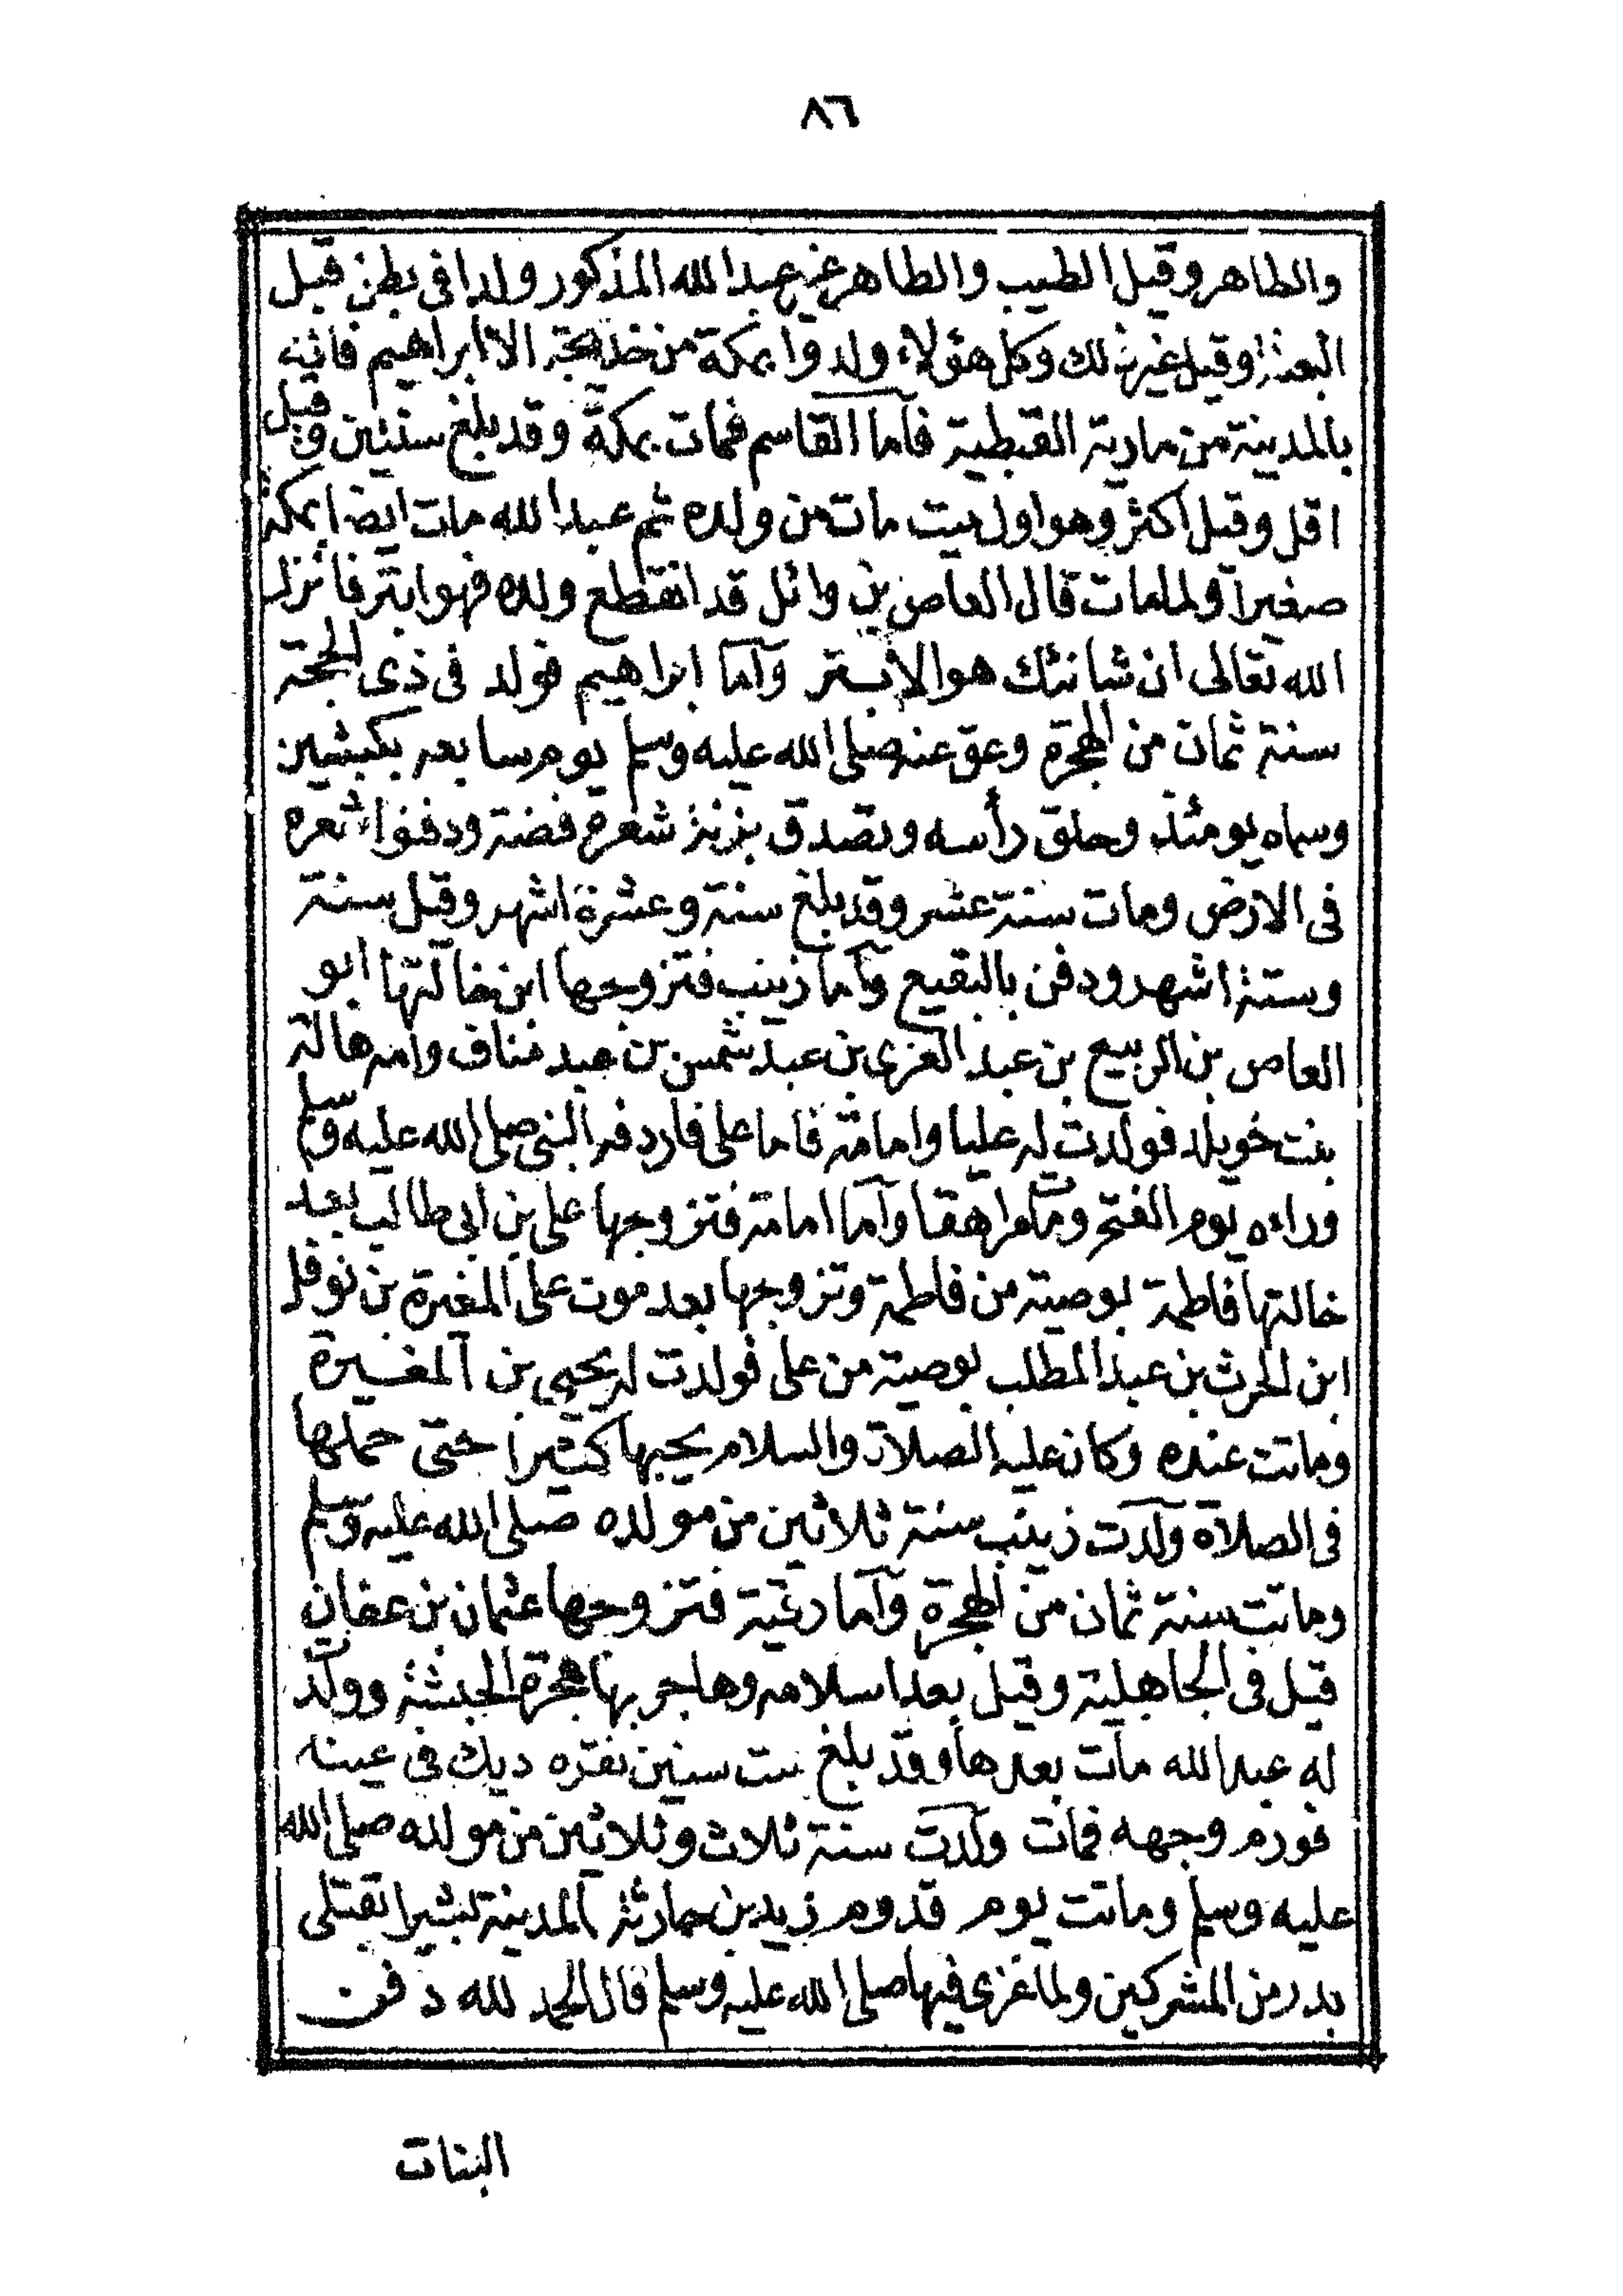 ٨٦
والطاهر وقيل الطيب والطاهر غير عبد الله المذكور ولدا فى بطن قبل
البعثة وقيل غير ذلك وكل هؤلاء ولدوا بمكة من خديجة الا ابراهيم فانه
بالمدينة من مارية القبطية فأما القاسم فمات بمكة وقد بلغ سنتين وقيل
اقل وقيل اكثر وهو اول ميت مات من ولده ثم عبد الله مات ايضا بمكة
صغيرا ولما مات قال العاص بن وائل قد انقطع ولده فهو ابتر فانزل
الله تعالى ان شانئك هو الابتر وأما ابراهيم فولد فى ذى الحجة
سنة ثمان من الهجرة وعق عنه صلى الله عليه وسلم يوم سابعه بكبشين
وسماه يومئذ وحلق رأسه وتصدق بزنة شعره فضة ودفنوا شعره
فى الارض ومات سنة عشر وقد بلغ سنة وعشرة اشهر وقيل سنة
وستة اشهر ودفن بالبقيع وأما زينب فتزوجها ابن خالتها ابو
العاص بن الربيع بن عبد العزى بن عبد شمس بن عبد مناف وامه هالة
بنت خويلد فولدت له عليا وامامة فاما على فاردفه النبى صلى الله عليه وسلم
وراءه يوم الفتح ومات مراهقا وأما امامة فتزوجها على بن ابى طالب بعد
خالتها فاطمة بوصية من فاطمة وتزوجها بعد موت على المغيرة بن نوفل
ابن الحرث بن عبد المطلب بوصية من على فولدت له يحيى بن المغيرة
وماتت عنده وكان عليه الصلاة والسلام يحبها كثيرا حتى حملها
فى الصلاة ولدت زينب سنة ثلاثين من مولده صلى الله عليه وسلم
وماتت سنة ثمان من الهجرة وأما رقية فتزوجها عثمان بن عفان
قيل فى الجاهلية وقيل بعد اسلامه وهاجر بها هجرة الحبشة وولدت
له عبد الله مات بعدها وقد بلغ ست سنين نقره ديك فى عينه
فورم وجهه فمات ولدت سنة ثلاث وثلاثين من مولده صلى الله
عليه وسلم وماتت يوم قدوم زيد بن حارثة المدينة بشيرا بقتلى
بدر من المشركين ولما عزى فيها صلى الله عليه وسلم قال الحمد لله دفن
البنات